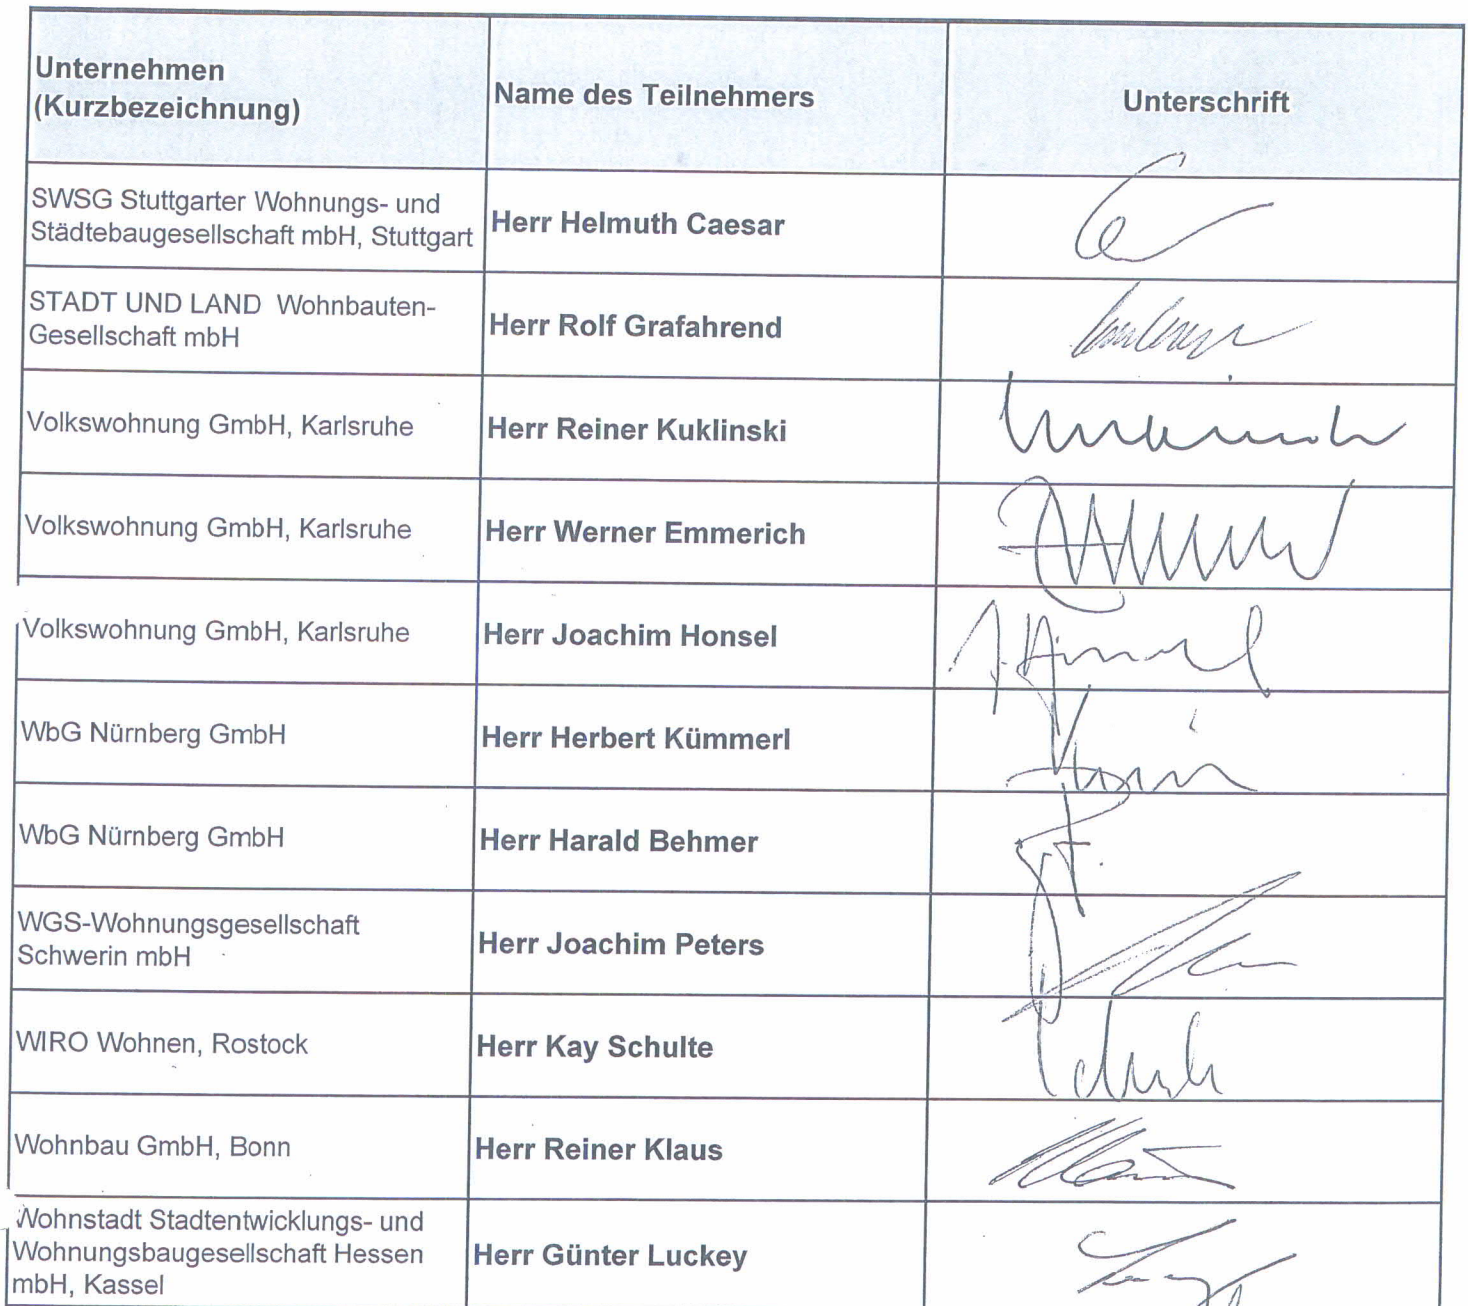 Unternehmen
(Kurzbezeichnung)
Name des Teilnehmers
Unterschrift
SWSG Stuttgarter Wohnungs- und
Städtebaugesellschaft mbH, Stuttgart
Herr Helmuth Caesar
STADT UND LAND Wohnbauten-
Gesellschaft mbH
Herr Rolf Grafahrend
Volkswohnung GmbH, Karlsruhe
Herr Reiner Kuklinski
Volkswohnung GmbH, Karlsruhe
Herr Werner Emmerich
Volkswohnung GmbH, Karlsruhe
Herr Joachim Honsel
WbG Nürnberg GmbH
Herr Herbert Kümmerl
WbG Nürnberg GmbH
Herr Harald Behmer
WGS-Wohnungsgesellschaft
Schwerin mbH
Herr Joachim Peters
WIRO Wohnen, Rostock
Herr Kay Schulte
Wohnbau GmbH, Bonn
Herr Reiner Klaus
Wohnstadt Stadtentwicklungs- und
Wohnungsbaugesellschaft Hessen
mbH, Kassel
Herr Günter Luckey